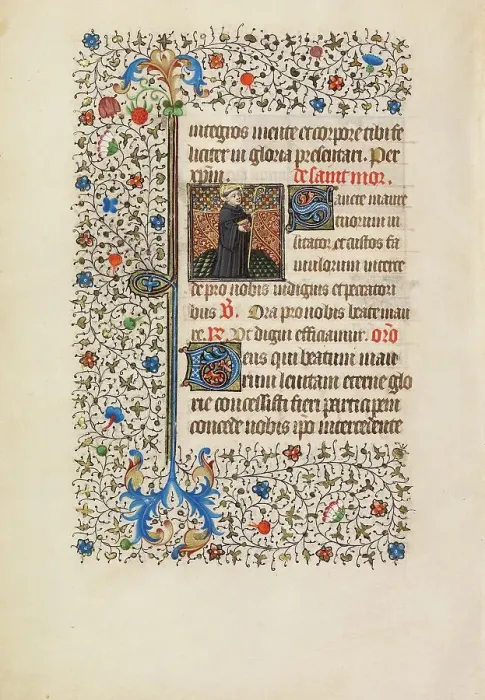 integros mente et corpore tibi fe
liciter in gloria presentari. Per
xpm. de saint mor.
Sancte maure
tuorum in
litator et custos fa
mulorum interce
de pro nobis indignis et peccatori
bus V. Ora pro nobis beate mau
re. R. Ut digni efficiamur. oro
Deus qui beatum mau
rum levitam eterne glo
rie concessisti fieri participem
concede nobis ipo intercedente